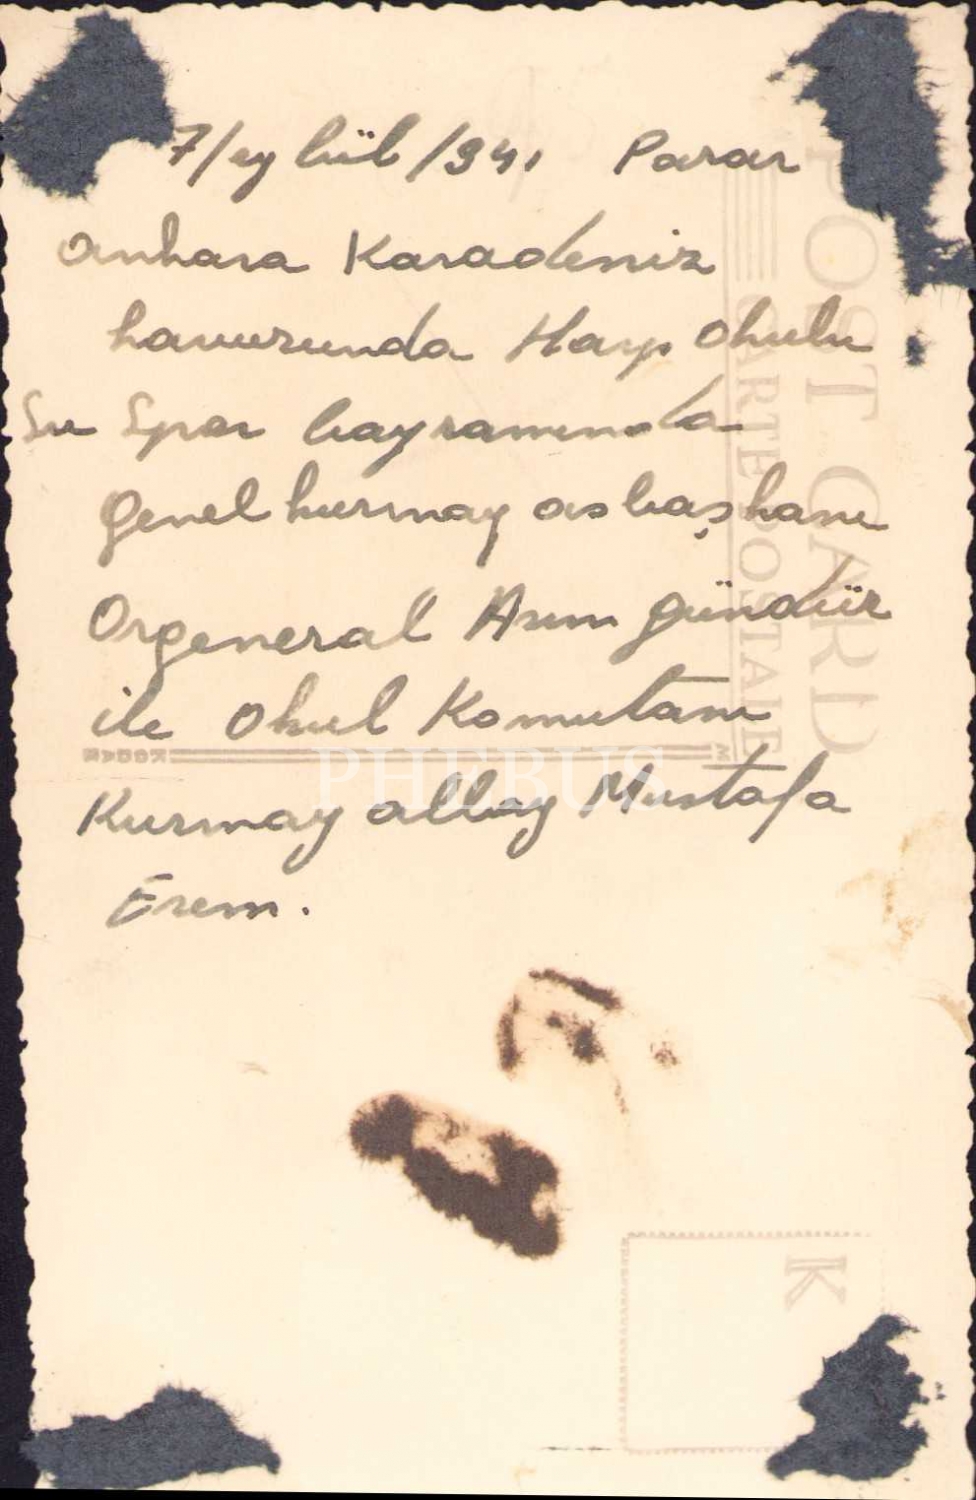 7/eylül/941 Pazar
Ankara Karadeniz
havuzunda Harp okulu
Su Spor bayramında
Genelkurmay asbaşkanı
Orgeneral Asım gündüz
ile Okul Komutanı
Kurmay albay Mustafa
Erem.
POST CARD
CARTE POSTALE
KODAK
PHEBUS
K